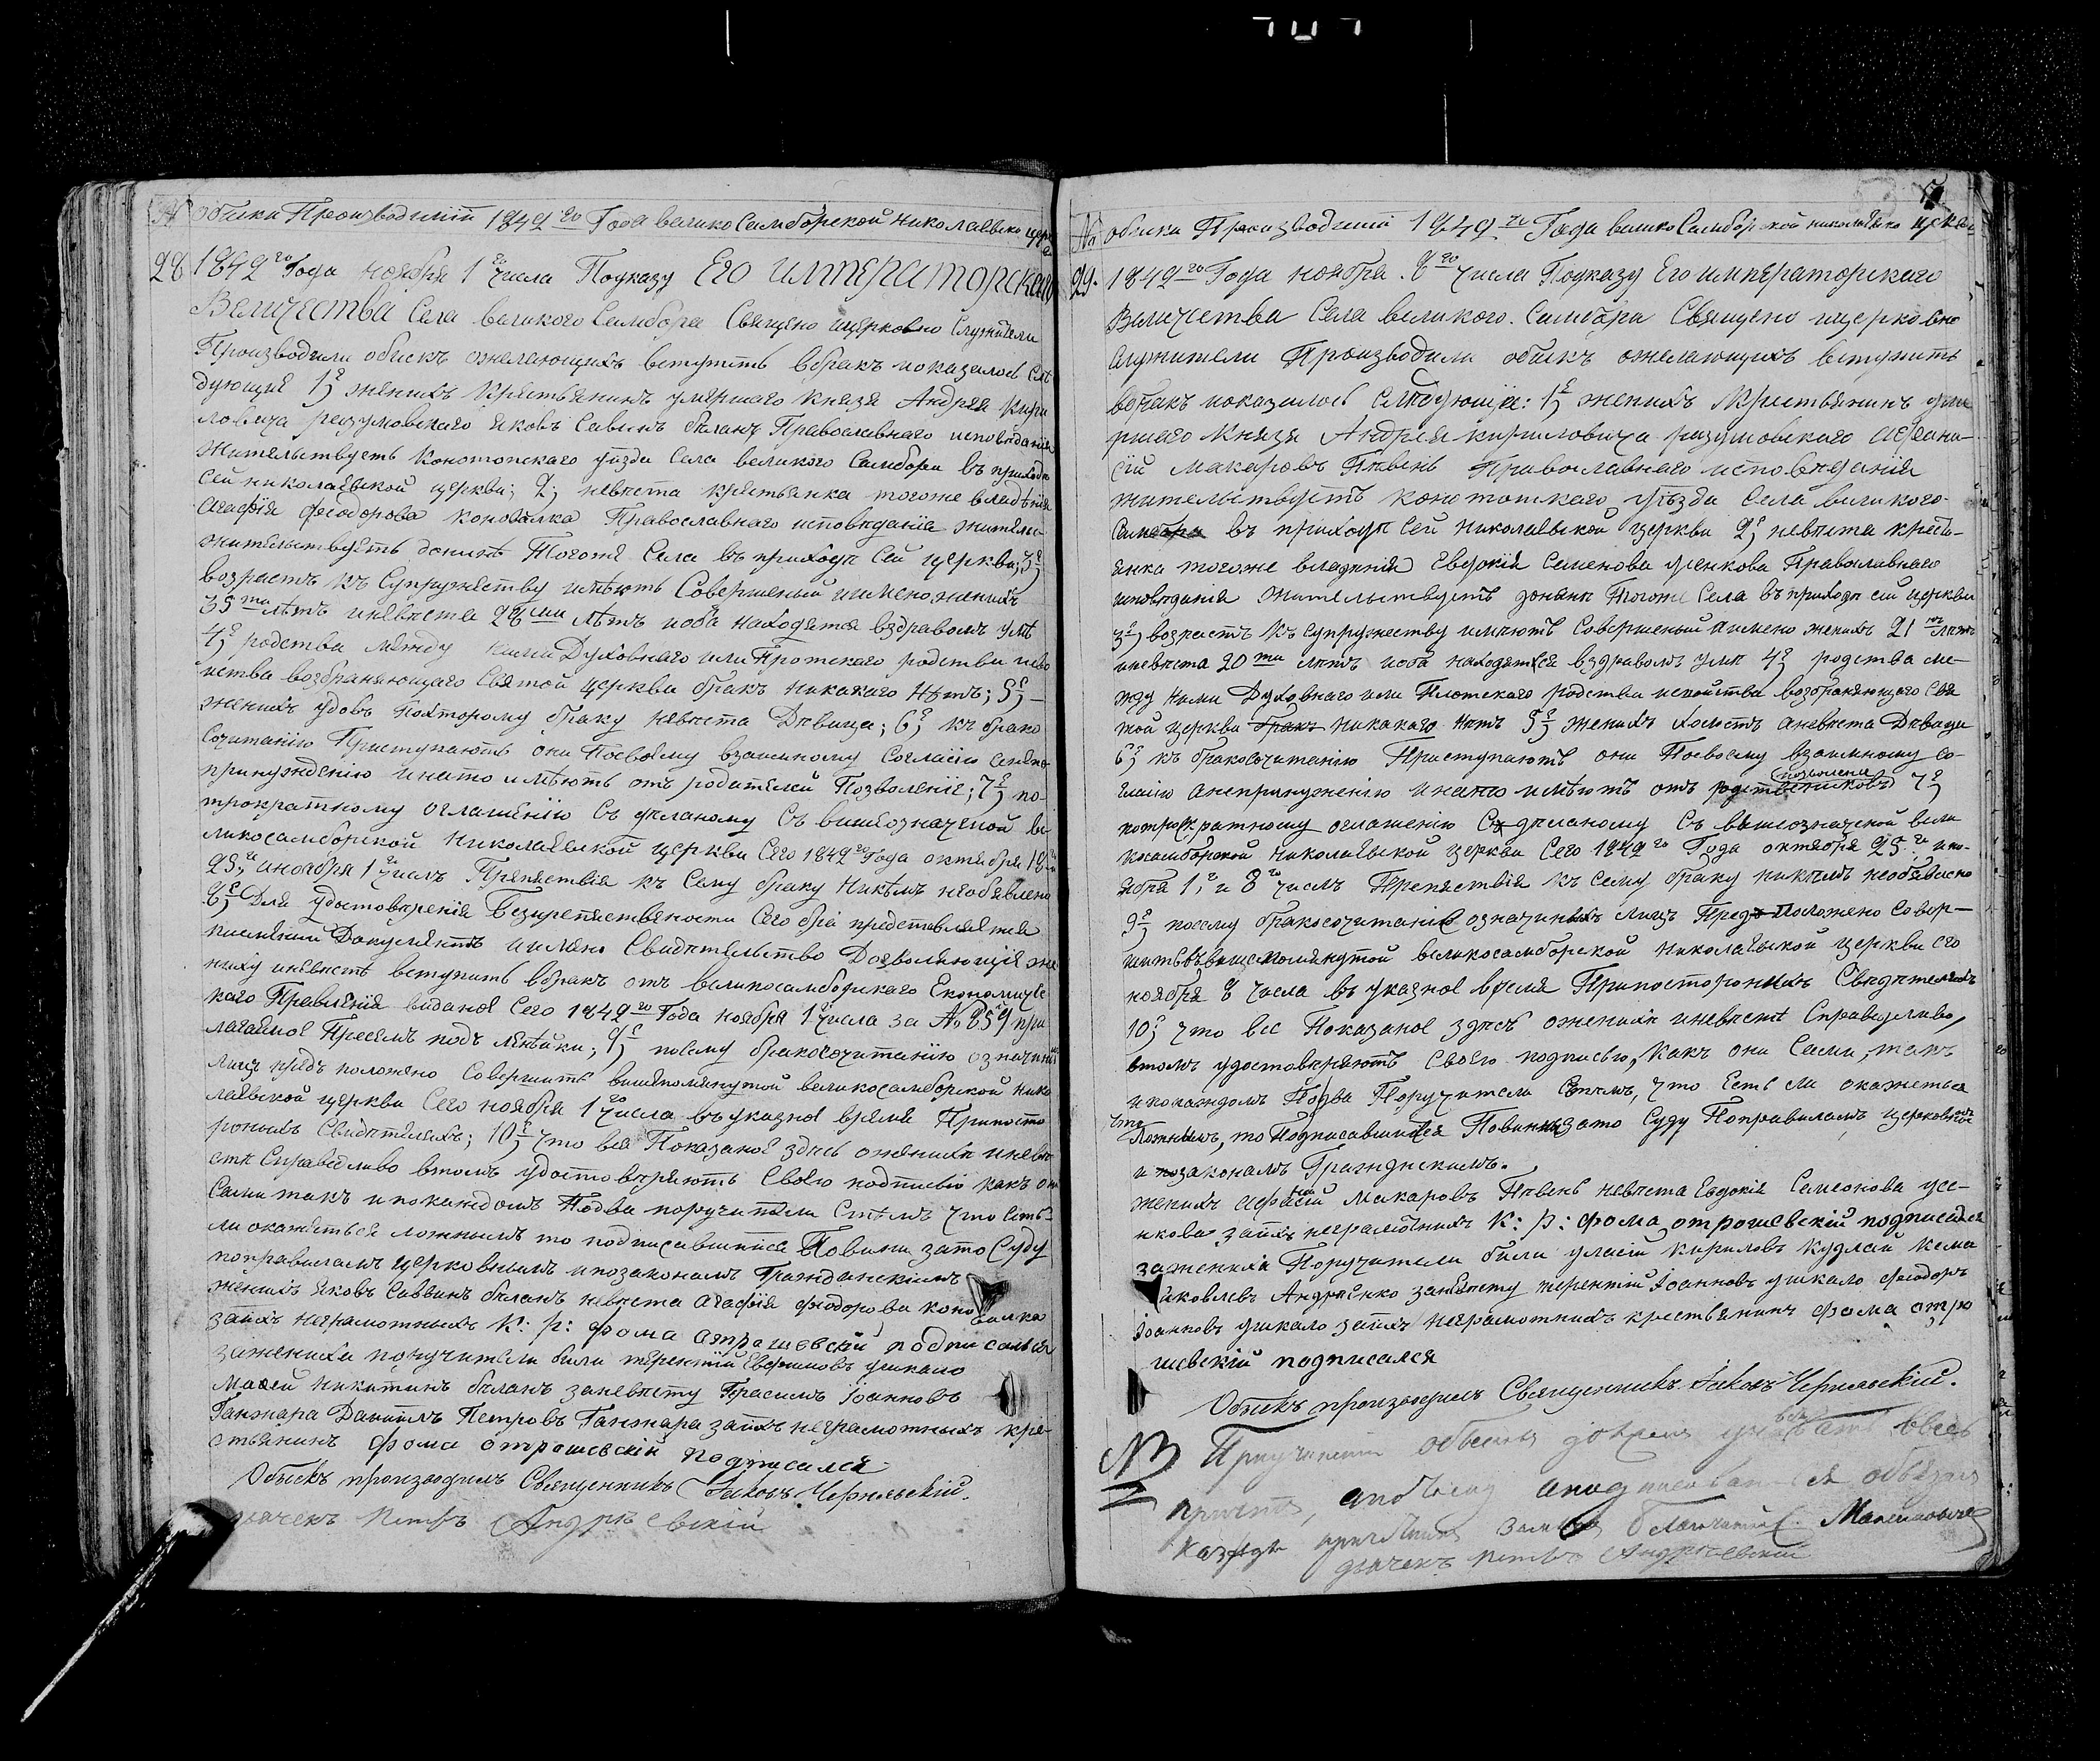 № обыски Произведении 1849го Года велико Самборской николаевско церк
28 1849го Года ноября 1го числа Поуказу Его императорскаго
Величества Села великого Самбора Священо ицерковно Служители
Производили обыскъ ожелающихъ вступить вбракъ иоказалось Слѣ
дующие 1е женихъ Крестьянинъ умершаго князя Андрея Кири
ловича разумовскаго Яковъ Савинъ бѣланъ Православнаго исповѣдания
жительствуетъ Конотопскаго уѣзда Села великого Самбора въ приходѣ
Сей николаевской церкви; 2; невѣста крестьянка тогоже владѣния
Агафія феодорова коновалка Православнаго исповѣдание жителс
жительствуетъ донынѣ Тогоже Села въ приходѣ Сей церкви; 3е
возрастъ къ Супружеству имѣютъ Совершеный иимено женихъ
35ти лѣтъ иневѣста 28ми лѣтъ иоба находятся вздравомъ умѣ
4е родства между ними Духовнаго или Плотскаго родства исво
иства возбраняющаго Святой церкви бракъ никакаго Нѣтъ; 5е
женихъ удовъ Повторому браку Невѣста Дѣвица; 6е къ брако
Сочитанію Приступаютъ они Посвоему взаимному Согласію анепо
принуждению инато имѣютъ отъ родителей Позволение; 7е по
трократному оглашению Съ дѣланому Съ вишеозначеной ве
ликосамборской Николаевской церкви Сего 1849го Года октября 18го
25го иноября 1го числъ Препяствія къ Сему браку Никѣмъ необявлено
8е Для удостоверения Безпрепяствености Сего бра представляется
писмений Документъ иимено Свидѣтельство Дозволяющіе же
ниху иневѣсте вступить вбракъ отъ великосамборскаго Економиче
каго Правления виданое Сего 1849го Года Ноября 1го числа за № 859 при
лагаимое Присемъ подъ Лѣтики; 9е посему бракосочитанию означиних
лицъ предъ положено Совершить вишепомянутой великосамборской нико
лаевской церкви Сего ноября 1го числа въ указное время Припосто
роныхъ Свидѣтеляхъ; 10е что все Показаное здѣсь оженихѣ иневѣ
стѣ Справедливо втомъ удостовѣряютъ Своею подписью какъ он
Сами такъ ипокаждомъ Подва поручители Стемъ что Есть-
ли окажеться ложнымъ то подписавшиися Повини зато Суду
поправиламъ церковнымъ ипозаконамъ Гражданскимъ
женихъ Яковъ Саввинъ бѣланъ невѣста Агафия феодорова коновалка
заихъ неграмотныхъ К: р: фома отрошевскій подписался
зажениха поручители были терентій Евфимовъ ушкало
Мосей никитинъ бѣланъ заневѣсту Герасимъ Іоанновъ
Ганжара Даниилъ Петровъ Ганжара заихъ неграмотныхъ кре
стьянинъ фома отрошевскій подписался
Обыскъ производилъ Священникъ Іаковъ Чернявскій.
дьячекъ Петръ Андріевский
№ обыски Произведении 1849го Года велико Самборской николаевско церкв
29. 1849го Года ноября 8го числа Поуказу Его императорскаго
Величества Села великого Самбора Священо ицерковно
Служители Производили обыскъ ожелающихъ вступить
вбракъ иоказалось Слѣдующіе: 1е женихъ Крестьянинъ уме
ршаго Князя Андрея кириловича разумовскаго Афана-
сій макаровъ Пѣвень Православнаго исповѣдания
жительствуетъ конотопскаго уѣзда Села великого
Самбора въ приходѣ Сей Николаевской церкви 2е невѣста кресть-
янка тогоже владѣния Евдокія Семенова усенкова Православнаго
исповѣдания жительствуетъ донынѣ Тогоже Села въ приходѣ сей церкви
3е возрастъ къ супружеству имѣютъ Совершеный иимено женихъ 21го лѣтъ
иневѣста 20ти лѣтъ иоба находятся вздравомъ умѣ 4е родства ме-
жду ними Духовнаго или Плотскаго родства исвойства возбраняющаго Свя
той церкви бракъ никакаго нѣтъ 5е женихъ холостъ аневѣста Дѣвица
6е къ бракосочитанию Приступаютъ они Посвоему взаимному со-
гласію анепринуждению инато имѣютъ отъ родствениковъ позволение 7е
потрократному оглашению Съ дѣланому Съ вышеозначеной вели
косамборской николаевской церкви Сего 1849го Года октября 25го ино-
ября 1го и 8го числъ Препяствія къ сему браку никѣмъ необявлено
9е посему бракосочитание означиныхъ лицъ Предъ Положено Совер-
шить ввишепомянутой великосамборской николаевской церкви сего
ноября 8 числа въ указное время Припостороннихъ Свидѣтеляхъ
10е что все Показаное здѣсь оженихѣ иневѣсте Справедливо,
втомъ удостовѣряютъ Своею подписью, какъ они Сами, такъ
ипокаждомъ Подва Поручители Стѣмъ, что Есть ли окажеться
что Ложнымъ, то Подписавшиися Повини зато Суду Поправиламъ церковнымъ
и позаконамъ Гражданскимъ.
женихъ Афанасій Макаровъ Пѣвень невѣста Евдокія Семенова усе-
нкова заихъ неграмотныхъ К: р: фома отрошевскій подписался
зажениха Поручители были уласій кириловъ кудлай кема
яковлевъ Андреенко заневѣсту терентій Іоанновъ ушкало феодоръ
Іоанновъ ушкало заихъ неграмотнихъ крестьянинъ фома отро
шевскій подписался
Обыскъ производилъ Священникъ Іаковъ Чернявскій.
NB
дьячекъ Петръ Андріевский